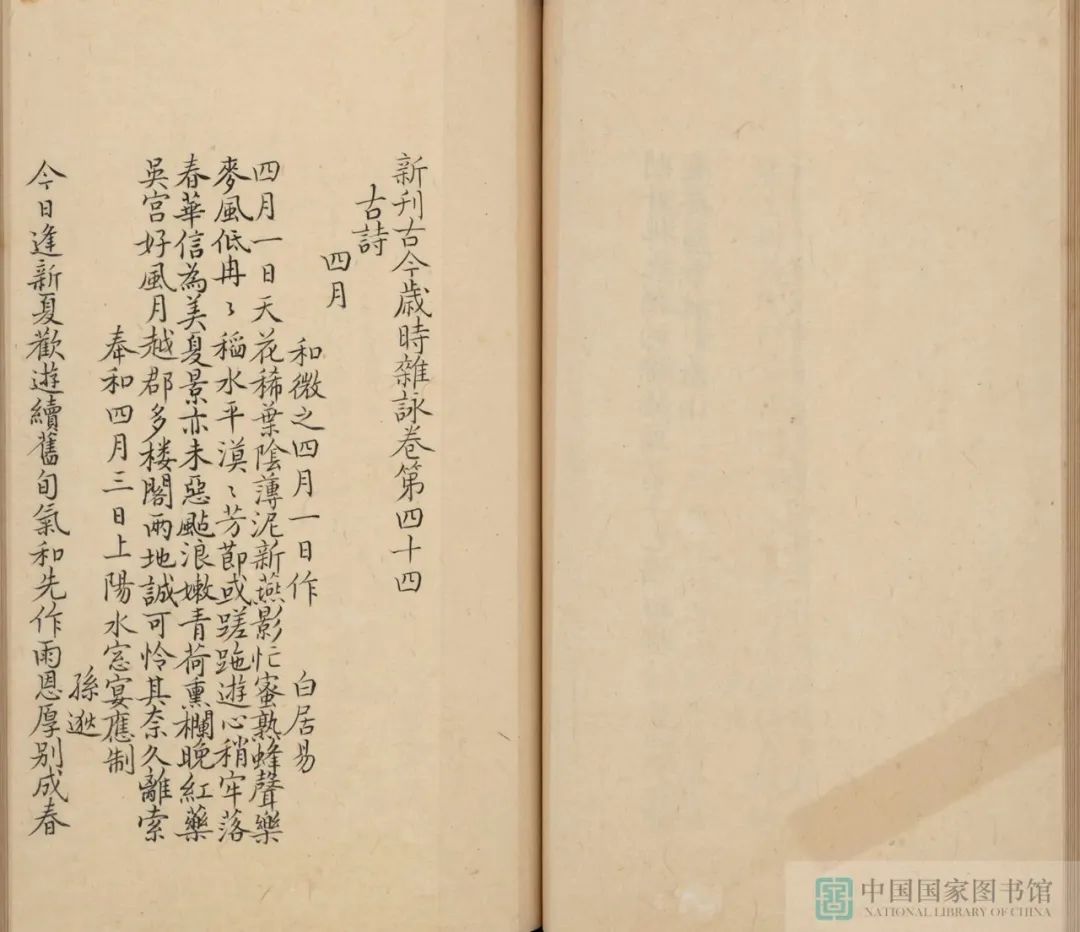 新刊古今歲時雜詠卷第四十四
古詩
四月
和微之四月一日作 白居易
四月一日天花稀葉陰薄泥新燕影忙蜜熟蜂聲樂
麥風低冉〻稻水平漠〻芳節或蹉跎遊心稍牢落
春華信為美夏景亦未惡颭浪嫩青荷熏欄晚紅藥
吳宮好風月越郡多楼閣兩地誠可怜其奈久離索
奉和四月三日上陽水窓宴應制
孫逖
今日逢新夏歡遊續舊旬氣和先作雨恩厚别成春
中国国家图书馆
NATIONAL LIBRARY OF CHINA